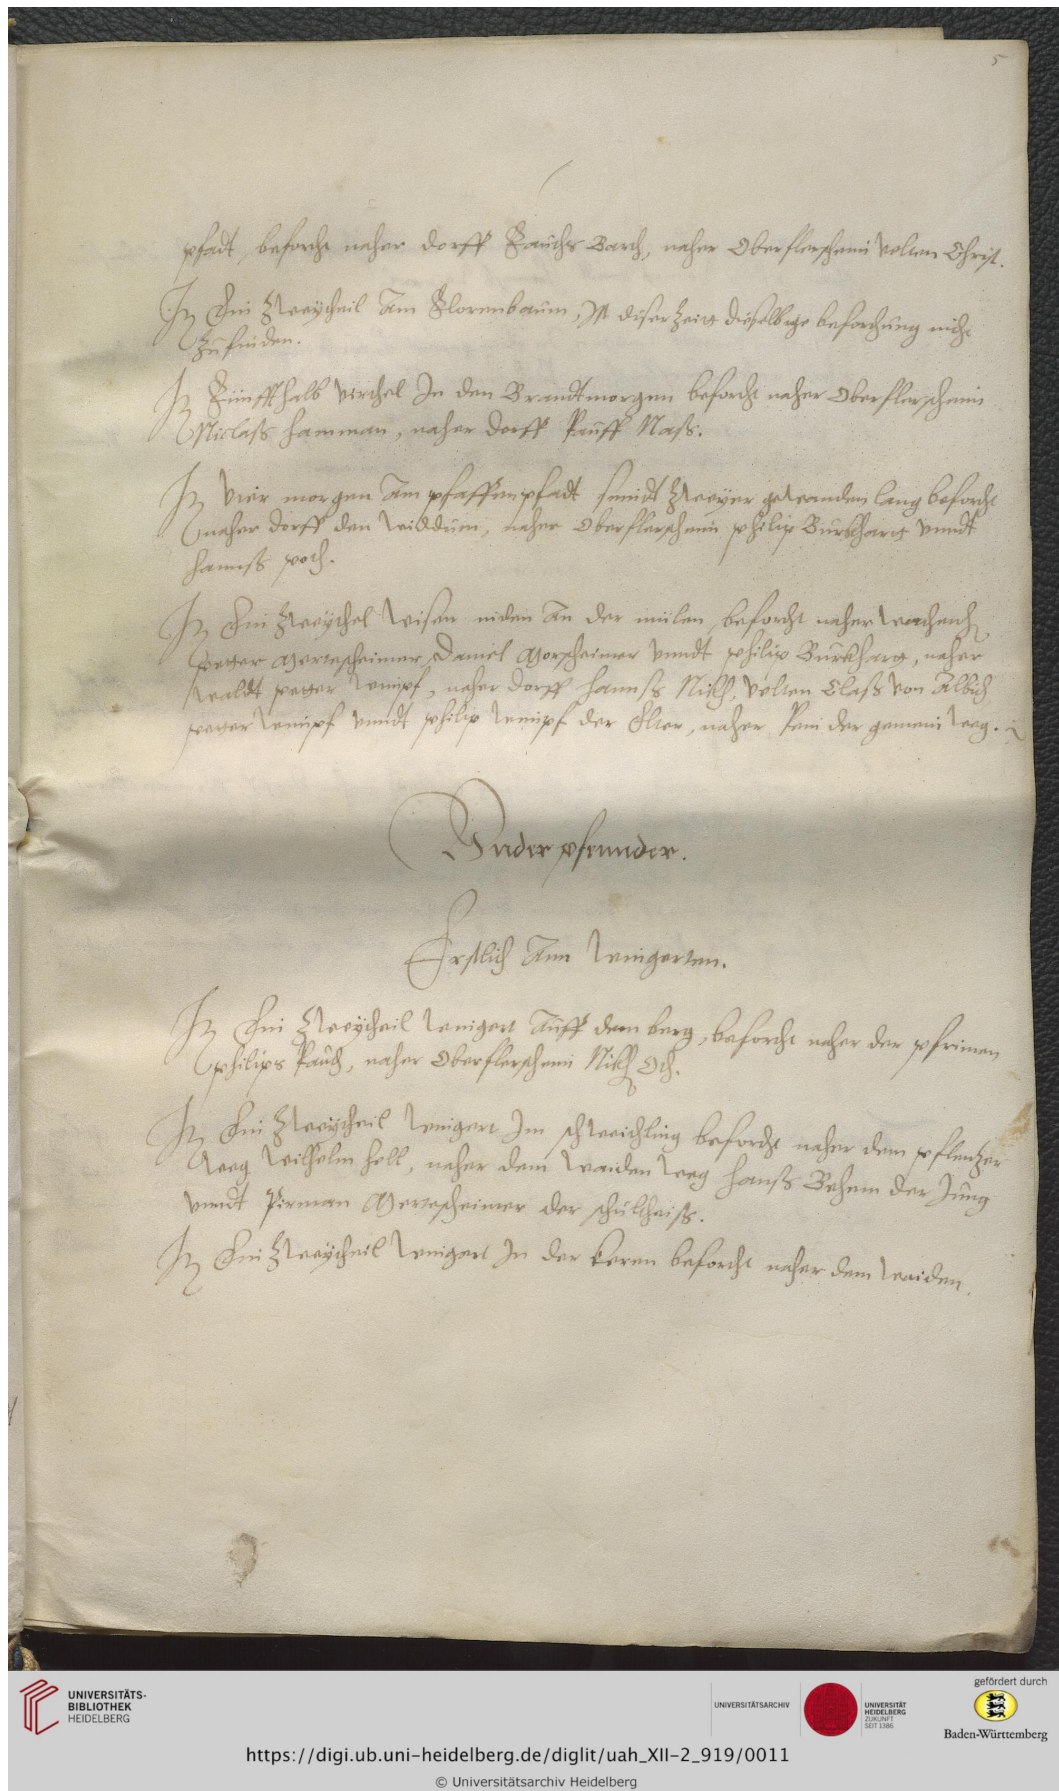 5
pfadt, beforcht naher dorff Bauchs Barch, naher Oberflersheim Velten Christ.
It. Ein Zweytheil Am Florenbaum, Ist diser Zeitt dieselbige beforchung nicht
Zufinden.
It. Fünffthalb virthel In den Brandtmorgen beforcht naher Oberflerscheim
Niclass Hamman, naher dorff Pauff Nass.
It. Vier morgen Am pfaffenpfadt seindt Zweyer gewanden lang beforcht
naher dorff den widdum, naher Oberflerscheim philip Burkhart vnndt
Hannss poch.
It. Ein Zweythel wisen niden An der mülen, beforcht naher
petter Mertescheimer, Daniel Morscheimer vnndt philip Burkhart, naher
waldt petter wimpf, naher dorff Hannss Nikh, Velten Class von Albich
petter wimpf vnndt philip wimpf der Elter, naher Rein der gemein weg.
Vnderpfennder.
Erstlich Ann wingerten.
It. Ein Zweytheil wingert Auff dem berg, beforcht naher der pfrimen
philips Rauch, naher Oberflerscheim Nikh Och.
It. Ein Zweytheil wingert Im schweichling beforcht naher dem pflentzer
weg wilhelm holl, naher dem waiden weg Hanss Behem der Jung
vnndt Pirman Mertescheimer der schultheiss.
It. Ein Zweytheil wingert In der keren beforcht naher dem waiden.
UNIVERSITÄTS-
BIBLIOTHEK
HEIDELBERG
UNIVERSITÄTSARCHIV
UNIVERSITÄT
HEIDELBERG
ZUKUNFT
SEIT 1386
gefördert durch
Baden-Württemberg
https://digi.ub.uni-heidelberg.de/diglit/uah_XII-2_919/0011
© Universitätsarchiv Heidelberg